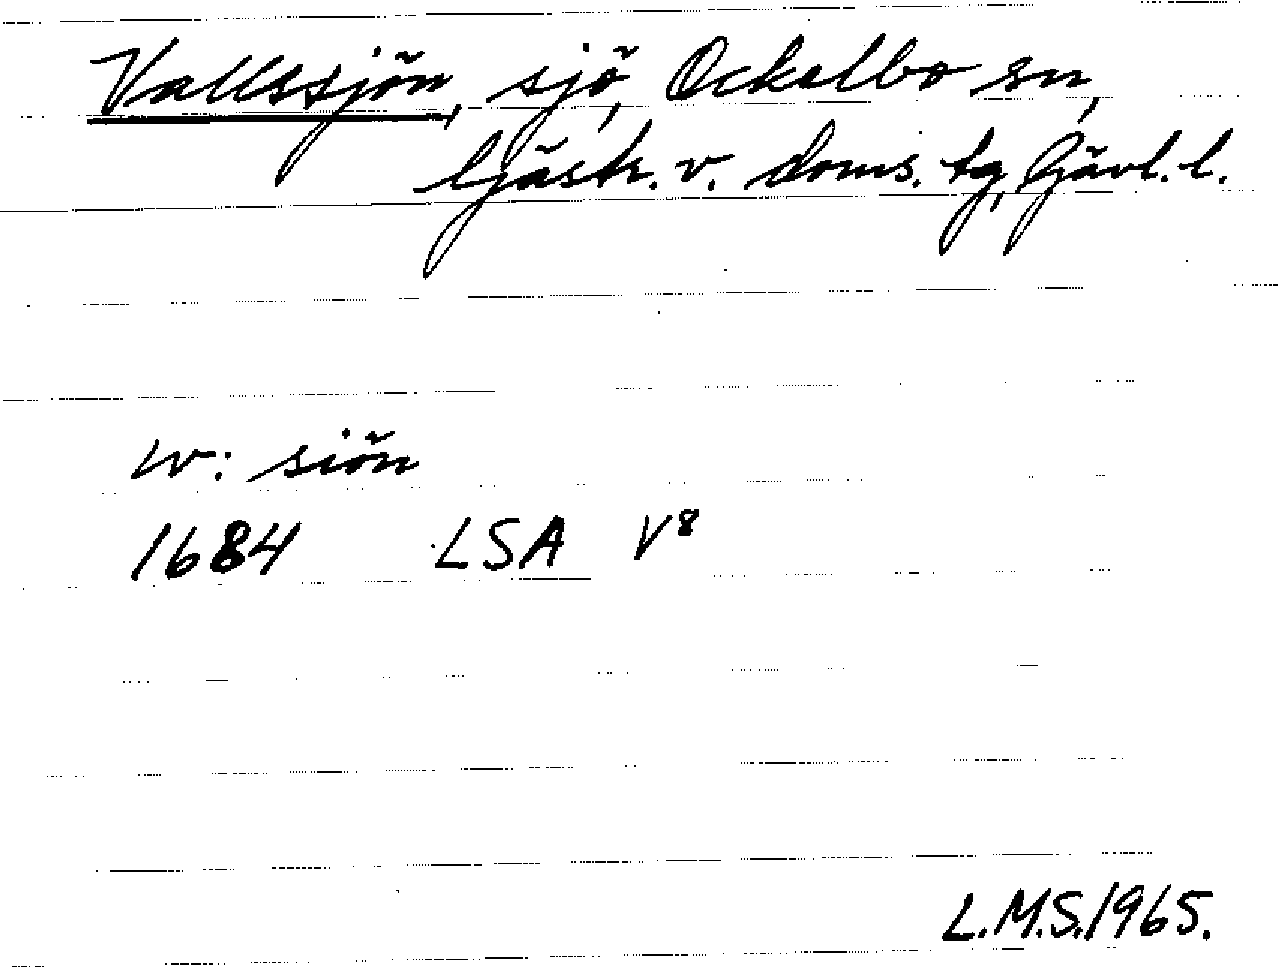 Vallssjön, sjö, Ockelbo sn,
Gästr. v. doms. tg, Gävl. l.
W: siön
1684 LSA V8
L.M.S. 1965.